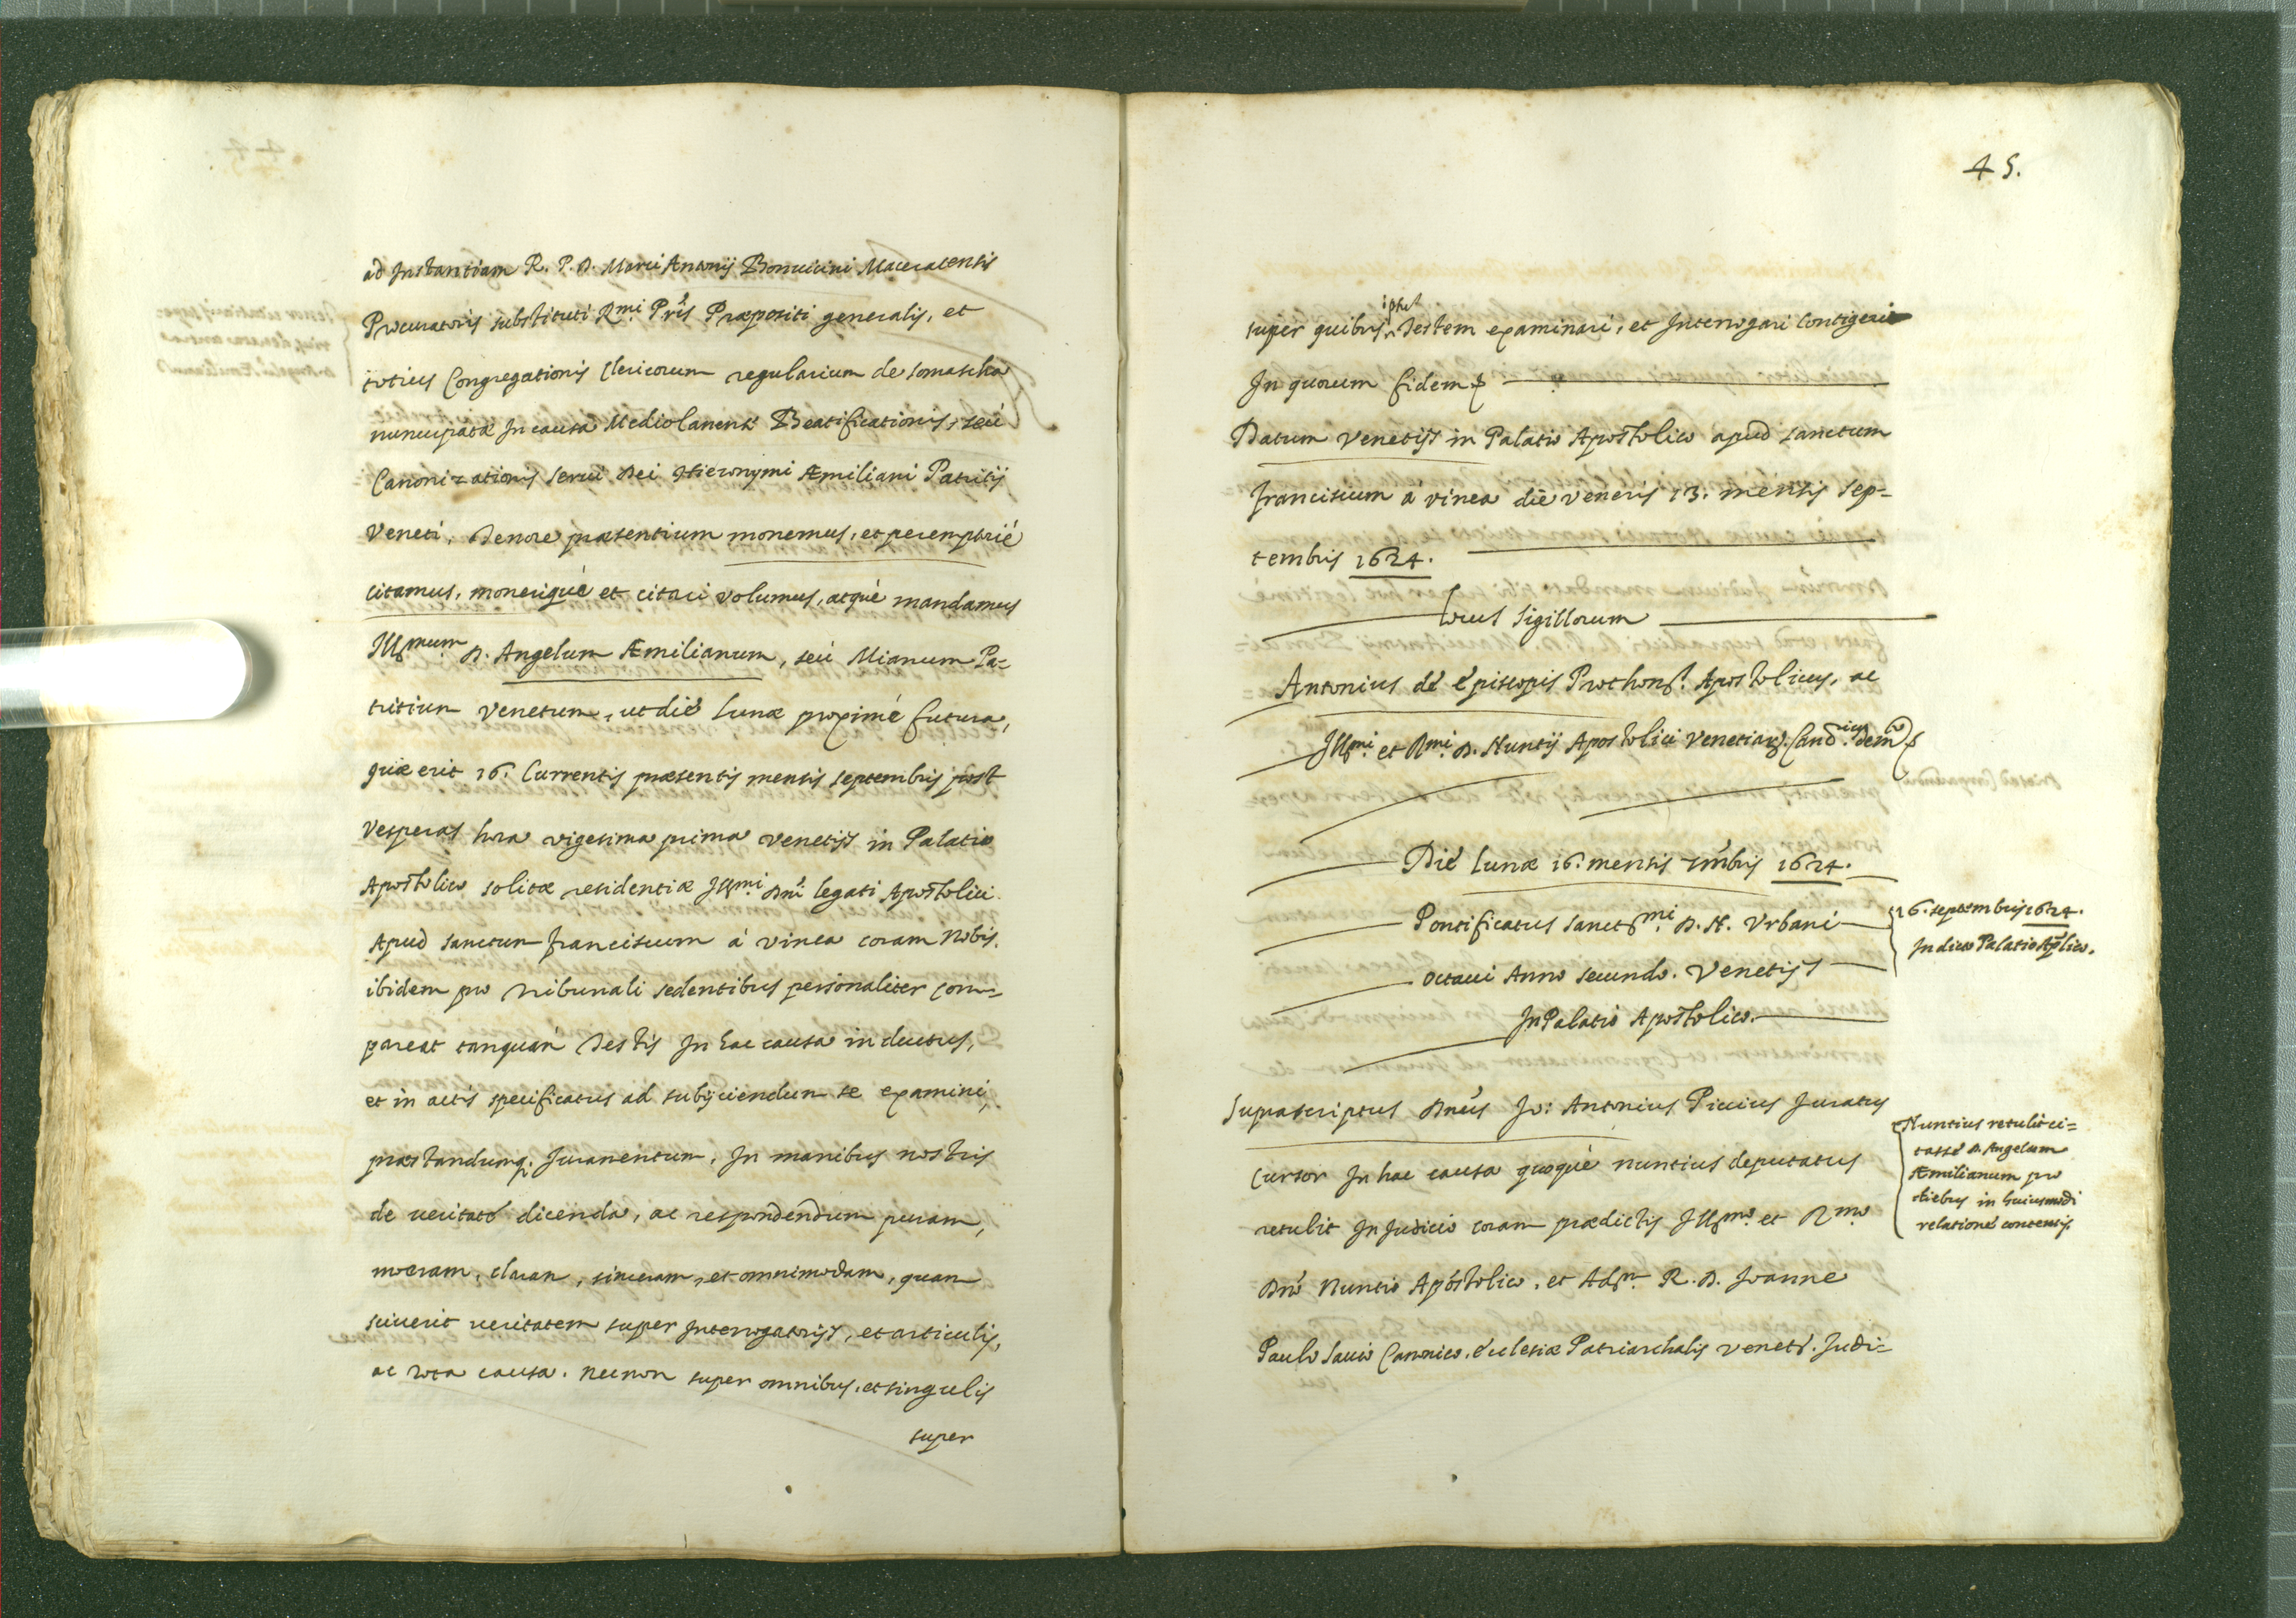 ad Instantiam R. P. D. Marci Antonij Bonuicini Maceratensis
Procuratoris substituti Rmi Pris Præpositi generalis, et
totius Congregationis Clericorum regularium de somascha
nuncupatæ In causa Mediolanens Beatificationis, seù
Canonizationis serui Dei Hieronymi Æmiliani Patritij
Veneti, Tenore præsentium monemus, et peremptoriè
citamus, moneriqué et citari volumus, atqué mandamus
Illmum D. Angelum Æmilianum, seù Mianum Pa=
tritium Venetum, ut dié Lunæ proximé futura,
quæ erit 16. Currentis præsentis mensis septembris post
Vesperas hora vigesima prima Venetijs in Palatio
Apostolico solitæ residentiæ Illmi Dni legati Apostolici
Apud sanctum franciscum à vinea coram Nobis
ibidem pro Tribunali sedentibus personaliter com=
pareat tanquàm Testis In hac causa inductus,
et in actis specificatus ad subijciendum se examini,
præstandumq; Juramentum, In manibus nostris
de ueritaté dicenda, ac respondendum puram,
meram, claram, sinceram, et omnimodam, quam
sciuerit ueritatem super Interrogatorijs, et articulis,
ac tota causa. necnon super omnibus, et singulis
super
45.
super quibus ipsu Testem examinari, et Interrogari Contigerit
In quorum fidem
Datum Venetijs in Palatio Apostolico apud sanctum
franciscum à vinea dié veneris 13. mensis sep=
tembris 1624.
Locus Sigillorum
Antonius dé épiscopis Prothons. Apostolicus, ac
Illmi. et Rmi. D. Nuntij Apostolici Venetiar. Cancrius
Dié Lunæ 16. mensis 7mbris 1624.
Pontificatus sanctmi D. N. Vrbani
octaui Anno secundo. Venetijs
In Palatio Apostolico.
16. septembris 1624.
In dicto Palatio Aplico.
Suprascriptus Dnus Jo: Antonius Piccius Juratus
Cursor In hac causa quoqué nuntius deputatus
retulit In Judicio coram prædictis Illmo. et Rmo
Dno Nuntio Apostolico, et Adm. R. D. Joanne
Paulo Sauio Canonico. écclesiæ Patriarchalis Venets. Judi=
Nuntius retulit ci=
tassé D. Angelum
Æmilianum pro
diebus in huiusmodi
relationé contentis